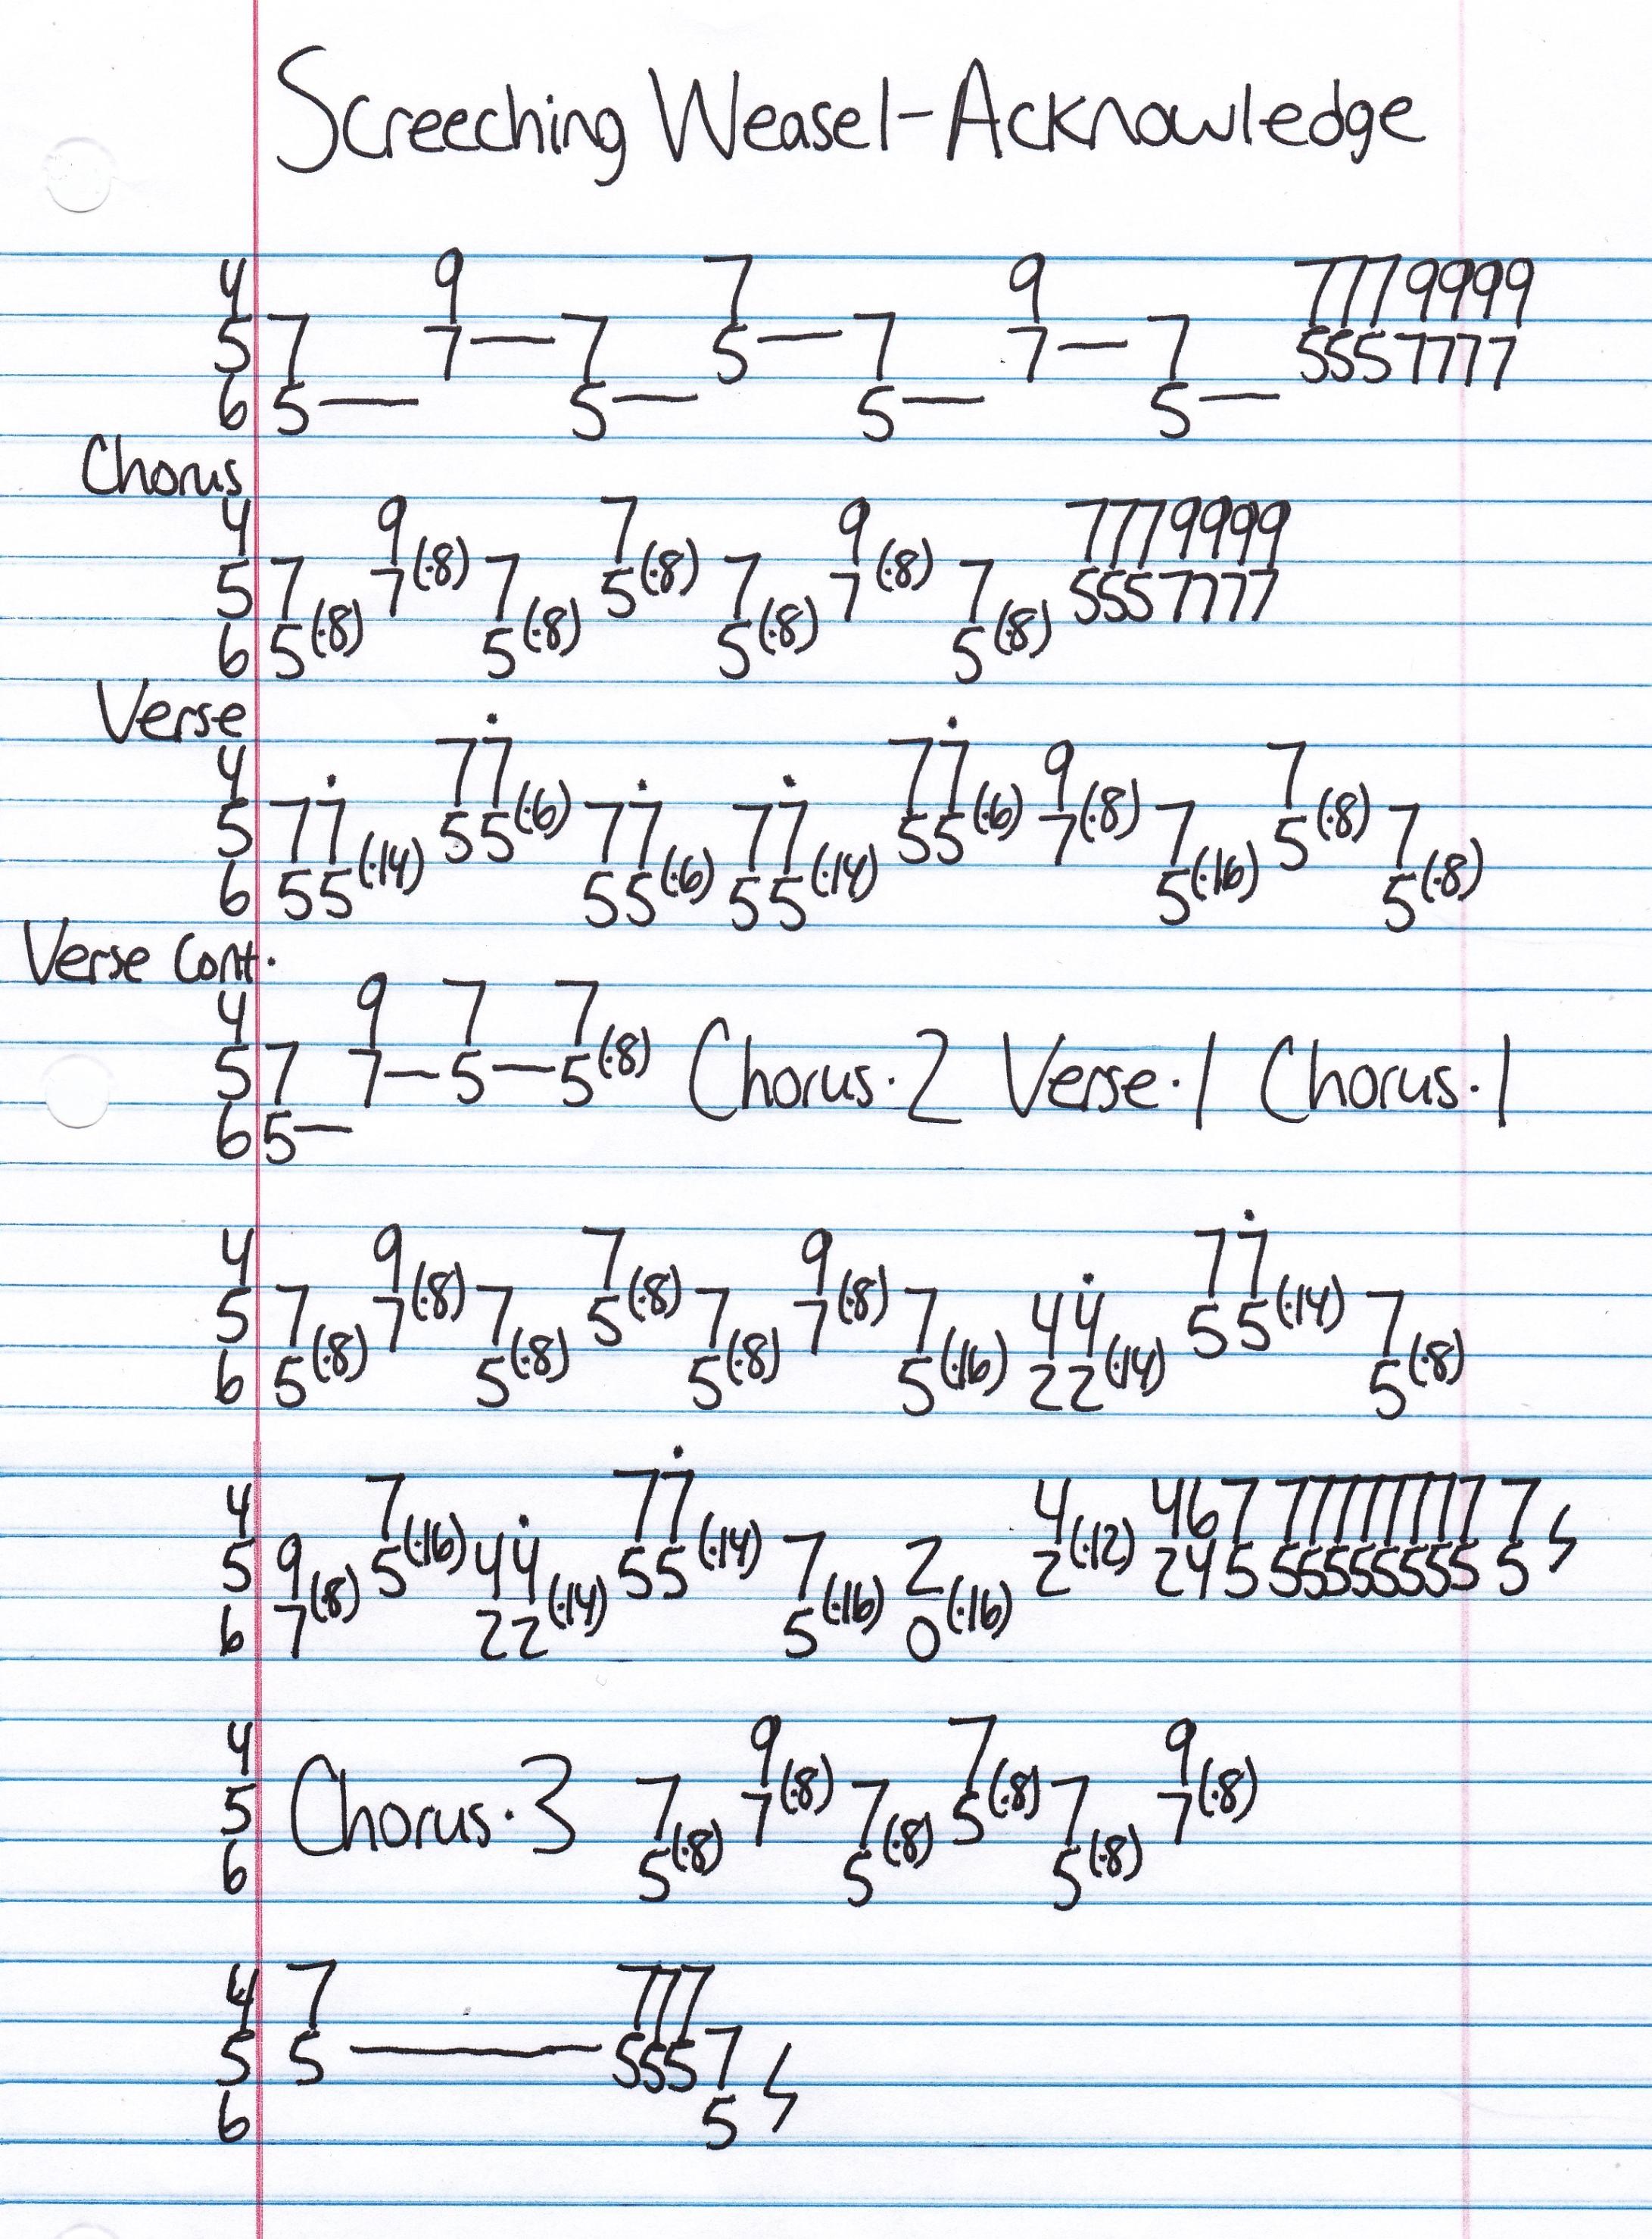 Screeching Weasel-Acknowledge
4 9 7 9 7779999
5 7 7— 7 5— 7 7— 7 5557777
6 5— 5— 5— 5—
Chorus
4 9 7 9 7779999
5 7 7(·8) 7 5(·8) 7 7(·8) 7 5557777
6 5(·8) 5(·8) 5(·8) 5(·8)
Verse
4 77̇ 77̇ 9 7
5 77̇ 55(·6) 77̇ 77̇ 55(·6) 7(·8) 7 5(·8) 7
6 55(·14) 55(·6) 55(·14) 5(·16) 5(·8)
Verse Cont.
4 9 7 7
5 7 7—5—5(·8) Chorus·2 Verse·1 Chorus·1
6 5—
4 9 7 9 77̇
5 7 7(·8) 7 5(·8) 7 7(·8) 7 44̇ 55(·14) 7
6 5(·8) 5(·8) 5(·8) 5(·16) 22(·14) 5(·8)
4 7 77̇ 4 467 77777777 7
5 9 5(·16) 44̇ 55(·14) 7 2 2(·12) 245 55555555 5
6 7(·8) 22(·14) 5(·16) 0(·16)
4 9 7 9
5 Chorus·3 7 7(·8) 7 5(·8) 7 7(·8)
6 5(·8) 5(·8) 5(·8)
4 7 777
5 5— 5557
6 5